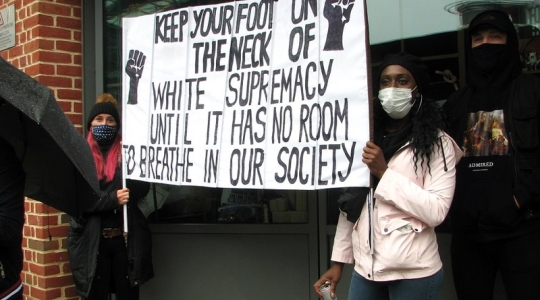 KEEP YOUR FOOT ON
THE NECK OF
WHITE SUPREMACY
UNTIL IT HAS NO ROOM
TO BREATHE IN OUR SOCIETY
ADMIRED